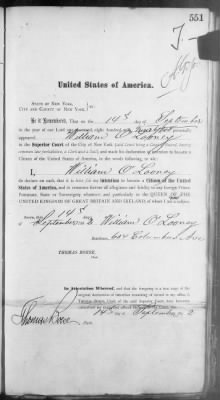 551
United States of America.
STATE OF NEW YORK,
CITY AND COUNTY OF NEW YORK, } ss.:
Be it Remembered, That on the 14th day of September
in the year of our Lord one thousand eight hundred and personally
appeared William O'Looney
in the Superior Court of the City of New York (said Court being a Court of Record, having
common law jurisdiction, a Clerk and a Seal), and made his declaration of intention to become a
Citizen of the United States of America, in the words following, to wit:
I, William O'Looney
do declare on oath, that it is bona fide my intention to become a Citizen of the United
States of America, and to renounce forever all allegiance and fidelity to any foreign Prince,
Potentate, State or Sovereignty whatever, and particularly to the QUEEN OF THE
UNITED KINGDOM OF GREAT BRITAIN AND IRELAND of whom I am a subject.
Sworn, this 14th
day of September 2 William O'Looney
Residence, Columbus Ave
THOMAS BOESE,
Clerk.
In Attestation Whereof, and that the foregoing is a true copy of the
original declaration of intention remaining of record in my office, I,
THOMAS BOESE, Clerk of the said Superior Court, have hereunto
14th day of September 2
Thomas Boese Clerk.